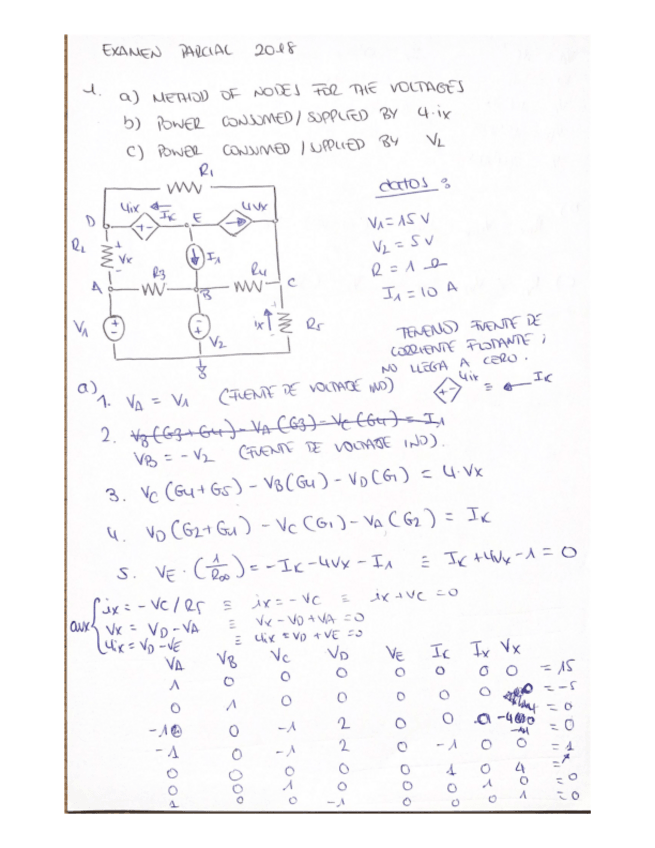 EXAMEN PARCIAL 2018
1. a) METHOD OF NODES FOR THE VOLTAGES
b) POWER CONSUMED / SUPPLIED BY 4·ix
c) POWER CONSUMED / SUPPLIED BY V2
R1
4ix IK E 4Vx
D
R2 + Vx - I1
A R3 B R4 C
V1 V2 ix R5
datos:
V1 = 15 V
V2 = 5 V
R = 1 Ω
I1 = 10 A
TENEMOS FUENTE DE
CORRIENTE FLOTANTE;
NO LLEGA A CERO.
4ix ≡ ← IK
a)
1. VA = V1 (FUENTE DE VOLTAGE IND)
2. VB(G3+G4) - VA(G3) - VC(G4) = I1
VB = -V2 (FUENTE DE VOLTAGE IND).
3. VC(G4+G5) - VB(G4) - VD(G1) = 4·Vx
4. VD(G2+G1) - VC(G1) - VA(G2) = IK
5. VE·(1/R∞) = -IK - 4Vx - I1 ≡ IK + 4Vx - 1 = 0
aux
ix = -VC/R5 ≡ ix = -VC ≡ ix + VC = 0
Vx = VD - VA ≡ Vx - VD + VA = 0
4ix = VD - VE ≡ 4ix - VD + VE = 0
VA VB VC VD VE IK Ix Vx
1 0 0 0 0 0 0 0 = 15
0 1 0 0 0 0 0 = -5
0 -1 2 0 0 = 0
-1 0 -1 2 0 -1 0 0 = 0
0 0 0 0 0 1 0 4
0 0 1 0 0 0 1 0 = 0
1 0 0 -1 0 0 0 1 = 0